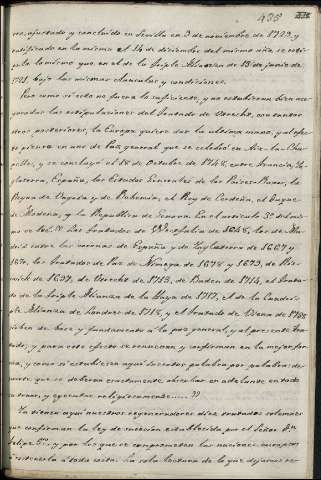 435
ro, ajustado y concluido en Sevilla en 9 de noviembre de 1729, y
ratificado en la misma el 14 de diciembre del mismo año, se esti-
pula lo mismo que en el de la triple Alianza de 13 de junio de
1721 bajo las mismas clausulas y condiciones.
Pero como si esto no fuera lo suficiente, y no estubieran bien ase-
guradas las estipulaciones del tratado de Utrecht, con
posteriores, la Europa quiere dar la ultima mano, y al efec-
to piensa en uno de paz general que se celebró en Aix-la-Cha-
pelle, y se concluyó el 18 de Octubre de 1748, entre Francia, In-
glaterra, España, los Estados Generales de los Paises Bajos, la
Reyna de Ungria y de Bohemia, el Rey de Cerdeña, el Duque
de Modena, y la Republica de Genova. En el articulo 3º del mis-
mo se lee: "Los tratados de Westfalia de 1648, los de Ma-
drid entre las coronas de España y de Inglaterra de 1667 y
1670, los tratados de Paz de Nimega de 1678 y 1679, de Ris-
wick de 1697, de Utrecht de 1713, de Baden de 1714, el trata-
do de la triple Alianza de la Haya de 1717, el de la cuadru-
ple Alianza de Londres de 1718, y el tratado de Viena de 1738
sirben de base y fundamento á la paz general, y al presente tra-
tado; y para este efecto se renuevan y confirman en la mejor for-
ma, y como si estubiesen aqui insertos palabra por palabra; de
suerte que se deberan exactamente observar en adelante en todo
su tenor, y ejecutar religiosamente......"
Ya tienen aqui nuestros regeneradores diez tratados solemnes
que confirman la ley de sucesion establecida por el Señor Dn
Felipe 5º, y por los que se comprometen las naciones europeas
á sostenerla á toda costa. La sola lectura de lo que dejamos re-